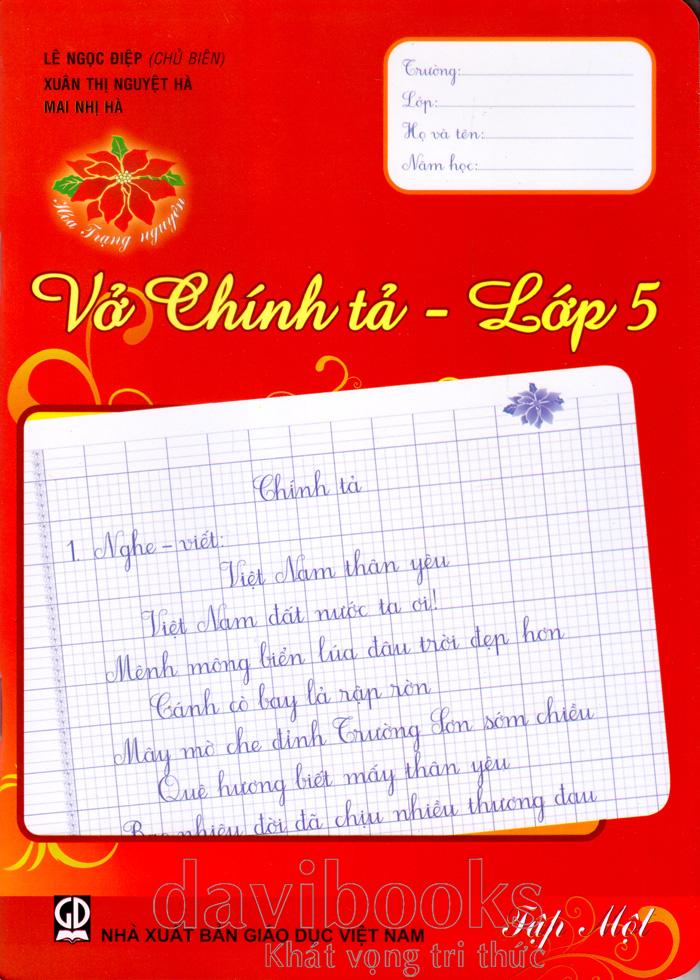 LÊ NGỌC ĐIỆP (CHỦ BIÊN)
XUÂN THỊ NGUYỆT HÀ
MAI NHỊ HÀ
Trường:
Lớp:
Họ và tên:
Năm học:
Hoa Trạng nguyên
Vở Chính tả - Lớp 5
Chính tả
1. Nghe - viết:
Việt Nam thân yêu
Việt Nam đất nước ta ơi!
Mênh mông biển lúa đâu trời đẹp hơn
Cánh cò bay lả rập rờn
Mây mờ che đỉnh Trường Sơn sớm chiều
Quê hương biết mấy thân yêu
Bao nhiêu đời đã chịu nhiều thương đau
davibooks
Khát vọng tri thức
GD
NHÀ XUẤT BẢN GIÁO DỤC VIỆT NAM
Tập Một